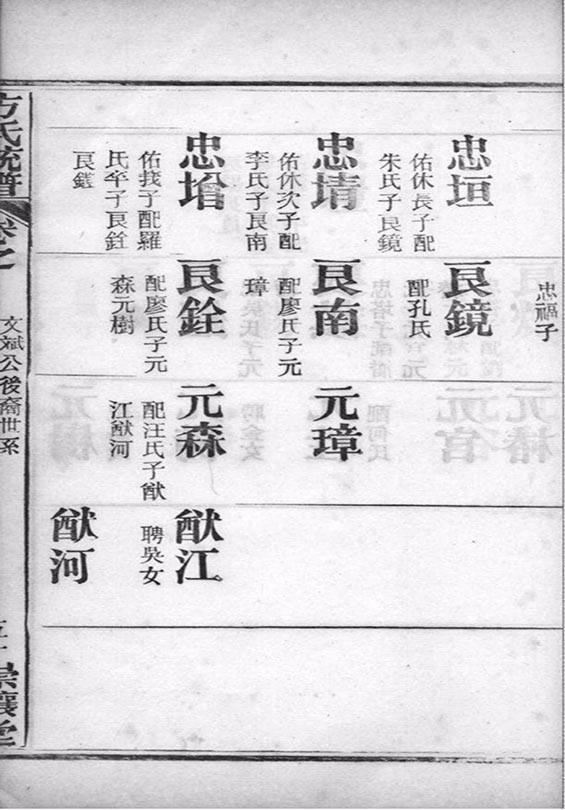 忠福子
忠垣
佑休長子配
朱氏子良鏡
良鏡
配孔氏
忠堉
佑休次子配
李氏子良南
良南
配廖氏子元
璋
元璋
忠增
佑我子配羅
氏子良銓
良鎈
良銓
配廖氏子元
森元樹
元森
配汪氏子猷
江猷河
猷江
聘吳女
猷河
方氏統譜
文斌公後裔世系